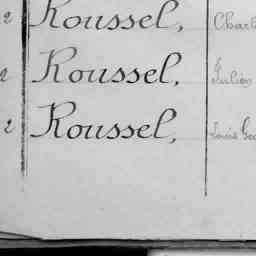 2 Roussel, Charl
2 Roussel, Julien
2 Roussel, Louis Geo